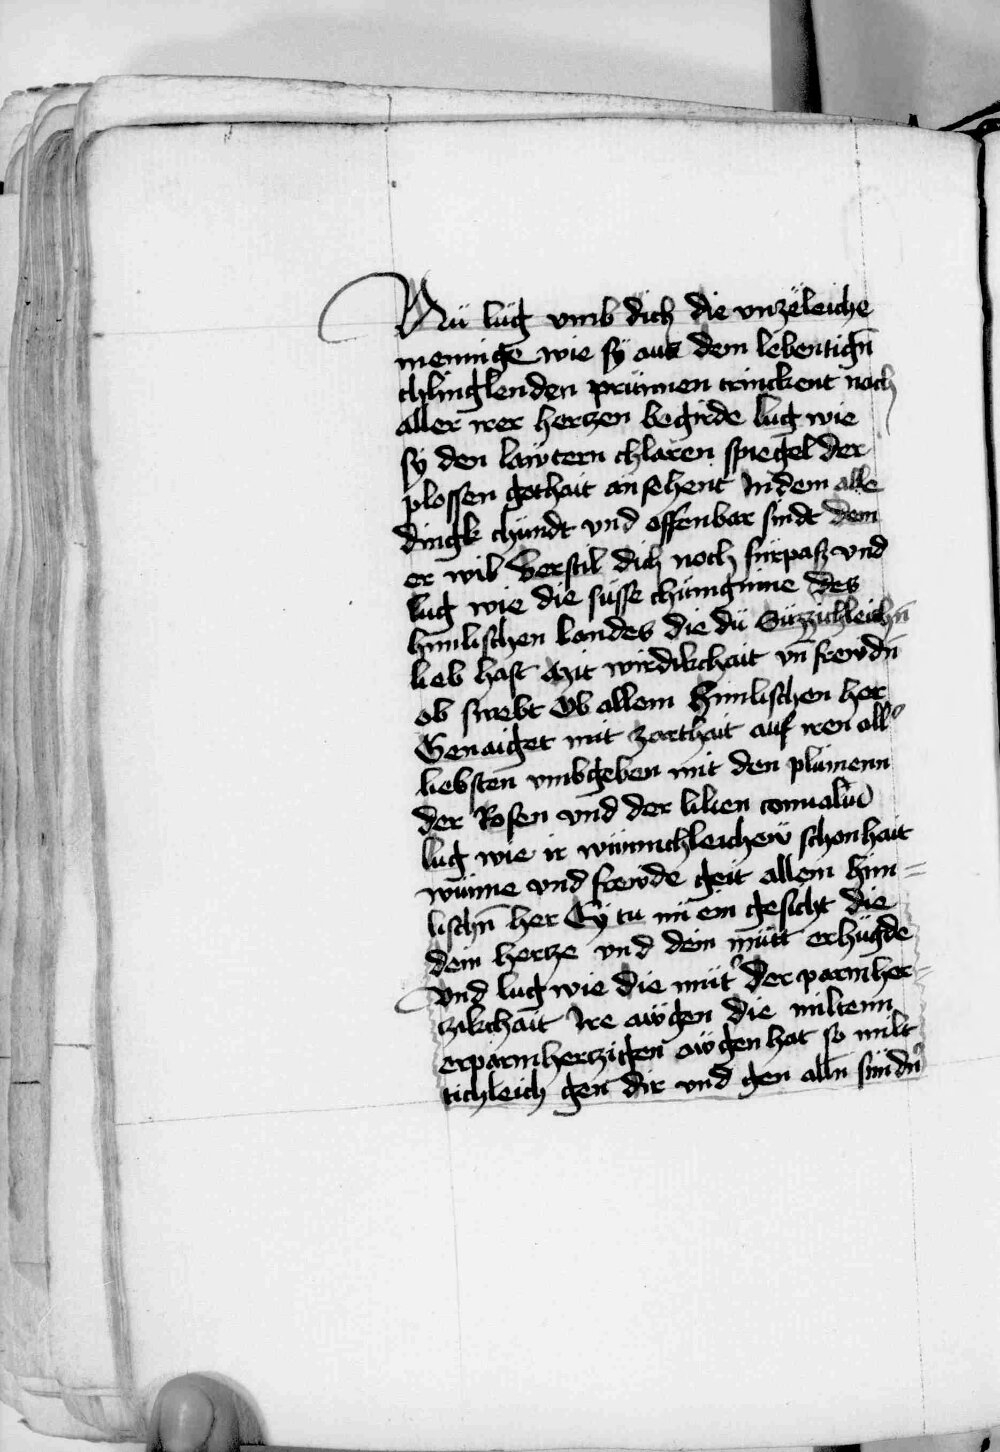 Nü lüg vmb dich die vnzëleiche
menninge wie sÿ aus dem lebentign̄
chlinglenden prünnen trinckent nach
aller irer hertzen begirde lug wie
sÿ den lawtern chlaren spiegel der
plossen gothait ansehent Indem alle
dingk chündt vnd offenbar sindt dem
er wil Verstil dich noch fürpaß vnd
lug wie die süsse chüniginne des
himlischen landes die dü Süzzichleichn̄
lieb hast Mit wirdikchait vn̄ frewdn̄
ob swebt Ob allem himlischen her
Genaiget mit zarthait auf iren all
liebsten vmbgeben mit den plümenn
der Rosen vnd der lilien conualiū
lug wie ir wünnichleichew schonhait
wünne vnd frewde geit allem him=
lischn̄ her Eÿ tu nü ein gesicht die
dein hertze vnd dein mütt erhügde
Vnd lug wie die müt' der parmher=
zikchait Ire awgen die miltenn
erparmhertzigen awgen hat so milt
tichleich gen dir vnd gen alln̄ sündn̄